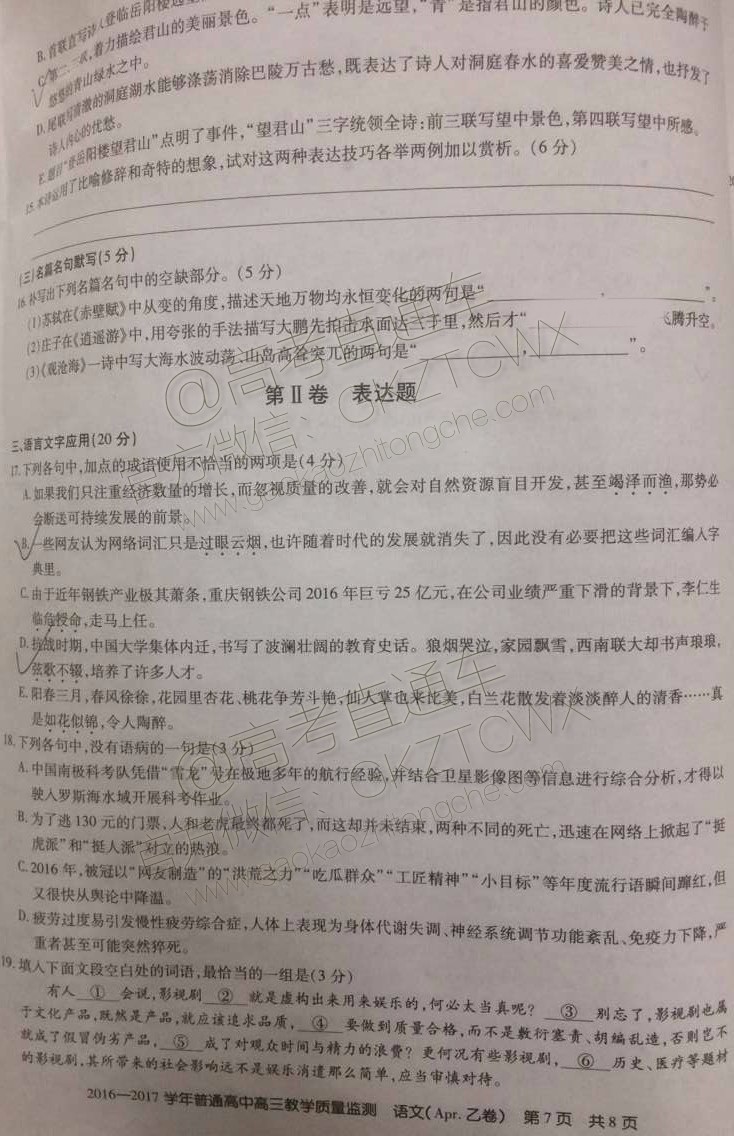 B.首联直写诗人登临岳阳楼远望
C.第二、三联,着力描绘君山的美丽景色。“一点”表明是远望,“青”是指君山的颜色。诗人已完全陶醉于
悠悠的青山绿水之中。
D.尾联写清澈的洞庭湖水能够涤荡消除巴陵万古愁,既表达了诗人对洞庭春水的喜爱赞美之情,也抒发了
诗人内心的忧愁。
E.题目“登岳阳楼望君山”点明了事件,“望君山”三字统领全诗:前三联写望中景色,第四联写望中所感。
15.本诗运用了比喻修辞和奇特的想象,试对这两种表达技巧各举两例加以赏析。(6分)
(三)名篇名句默写(5分)
16.补写出下列名篇名句中的空缺部分。(5分)
(1)苏轼在《赤壁赋》中从变的角度,描述天地万物均永恒变化的两句是“ , ”。
(2)庄子在《逍遥游》中,用夸张的手法描写大鹏先拍击水面达三千里,然后才“ ”飞腾升空。
(3)《观沧海》一诗中写大海水波动荡、山岛高耸突兀的两句是“ , ”。
第Ⅱ卷 表达题
三、语言文字应用(20分)
17.下列各句中,加点的成语使用不恰当的两项是(4分)
A.如果我们只注重经济数量的增长,而忽视质量的改善,就会对自然资源盲目开发,甚至竭泽而渔,那势必
会断送可持续发展的前景。
B.一些网友认为网络词汇只是过眼云烟,也许随着时代的发展就消失了,因此没有必要把这些词汇编入字
典里。
C.由于近年钢铁产业极其萧条,重庆钢铁公司2016年巨亏25亿元,在公司业绩严重下滑的背景下,李仁生
临危授命,走马上任。
D.抗战时期,中国大学集体内迁,书写了波澜壮阔的教育史话。狼烟哭泣,家园飘雪,西南联大却书声琅琅,
弦歌不辍,培养了许多人才。
E.阳春三月,春风徐徐,花园里杏花、桃花争芳斗艳,仙人掌也来比美,白兰花散发着淡淡醉人的清香……真
是如花似锦,令人陶醉。
18.下列各句中,没有语病的一句是(3分)
A.中国南极科考队凭借“雪龙”号在极地多年的航行经验,并结合卫星影像图等信息进行综合分析,才得以
驶入罗斯海水域开展科考作业。
B.为了逃130元的门票,人和老虎最终都死了,而这却并未结束,两种不同的死亡,迅速在网络上掀起了“挺
虎派”和“挺人派”对立的热浪。
C.2016年,被冠以“网友制造”的“洪荒之力”“吃瓜群众”“工匠精神”“小目标”等年度流行语瞬间蹿红,但
又很快从舆论中降温。
D.疲劳过度易引发慢性疲劳综合症,人体上表现为身体代谢失调、神经系统调节功能紊乱、免疫力下降,严
重者甚至可能突然猝死。
19.填入下面文段空白处的词语,最恰当的一组是(3分)
有人 ① 会说,影视剧 ② 就是虚构出来用来娱乐的,何必太当真呢? ③ 别忘了,影视剧也属
于文化产品,既然是产品,就应该追求品质, ④ 要做到质量合格,而不是敷衍塞责、胡编乱造,否则岂不
就成了假冒伪劣产品, ⑤ 成了对观众时间与精力的浪费?更何况有些影视剧, ⑥ 历史、医疗等题材
的影视剧,其所带来的社会影响远不是娱乐消遣那么简单,应当审慎对待。
2016—2017学年普通高中高三教学质量监测 语文(Apr.乙卷) 第7页 共8页
@高考直通车
官方微信:GKZTCWX
www.gaokaozhitongche.com
@高考直通车
官方微信:GKZTCWX
www.gaokaozhitongche.com